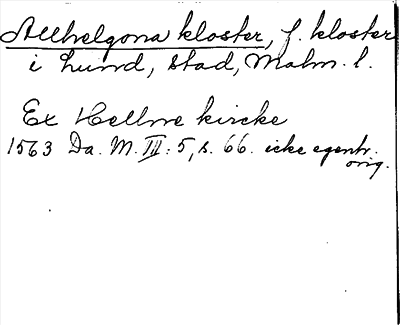 Allhelgona kloster, f. kloster
i Lund, stad, Malm. l.
Ex Hellne kircke
1563 Da. M. III: 5, s. 66. icke egentr.
orig.